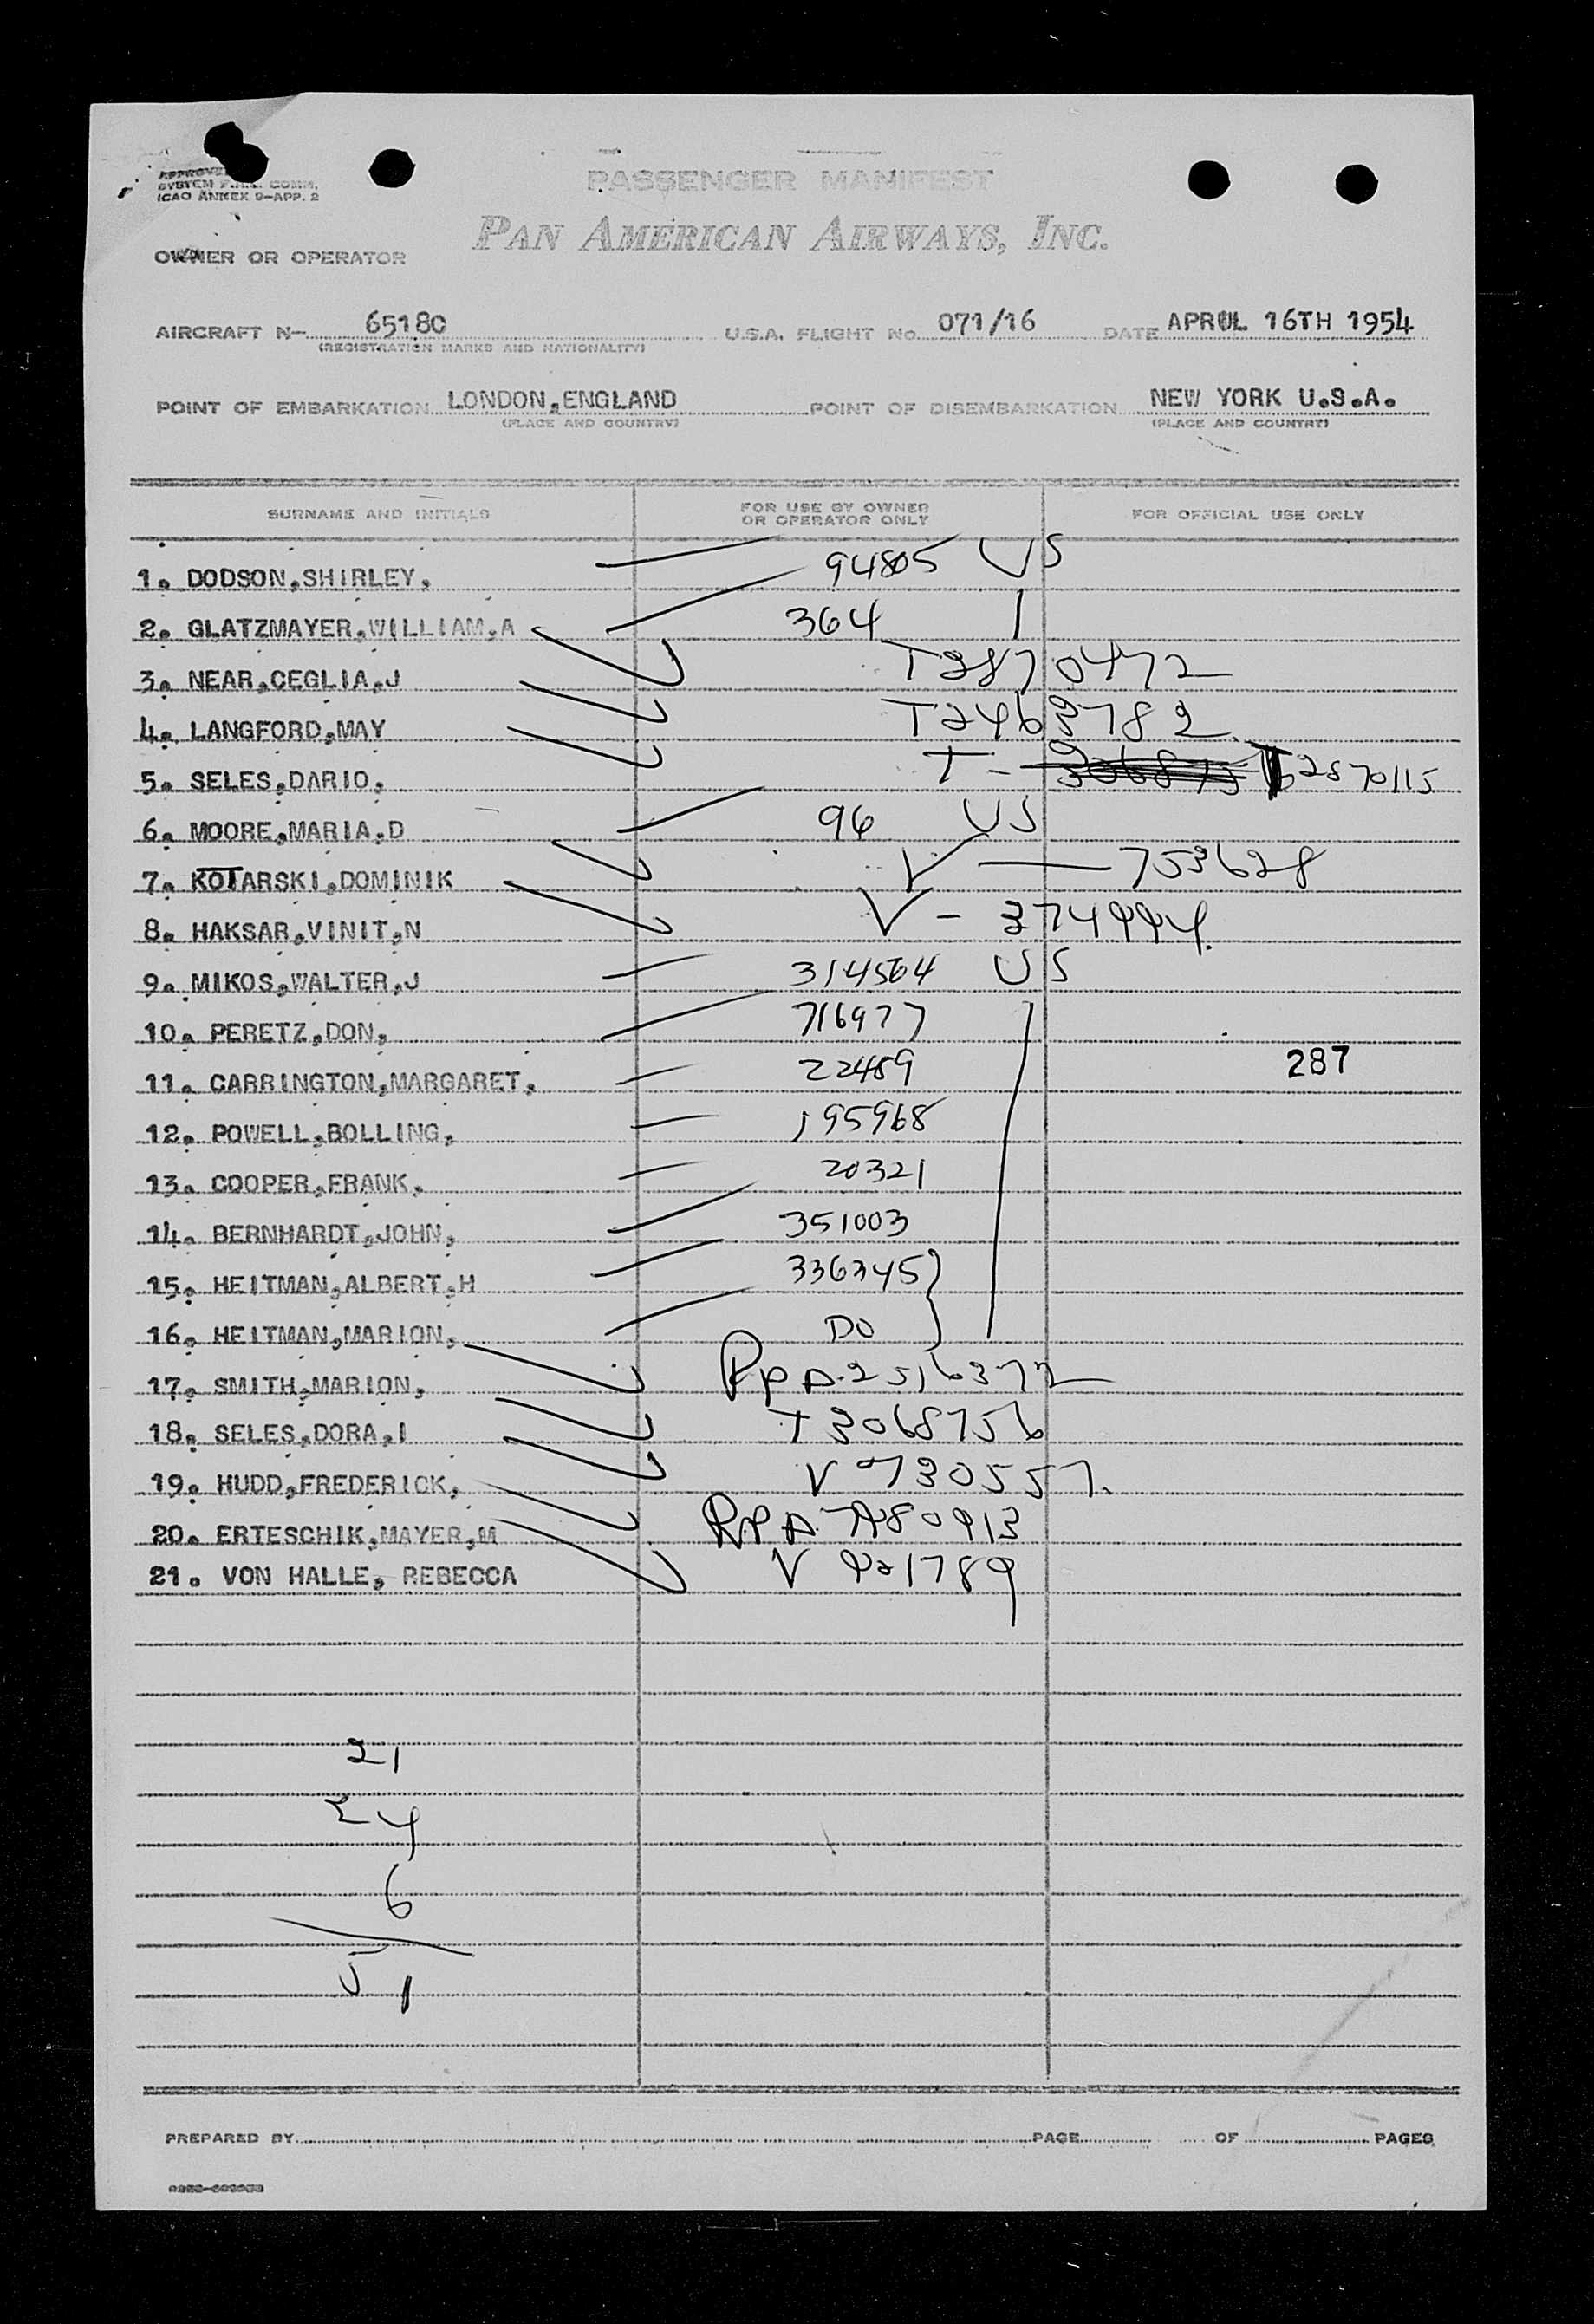 ICAO ANNEX 9-APP. 2
PASSENGER MANIFEST
PAN AMERICAN AIRWAYS, INC.
OWNER OR OPERATOR
AIRCRAFT N- 65180 U.S.A. FLIGHT No. 071/16 DATE APRUL 16TH 1954
(REGISTRATION MARKS AND NATIONALITY)
POINT OF EMBARKATION LONDON,ENGLAND POINT OF DISEMBARKATION NEW YORK U.S.A.
(PLACE AND COUNTRY) (PLACE AND COUNTRY)
SURNAME AND INITIALS FOR USE BY OWNER OR OPERATOR ONLY FOR OFFICIAL USE ONLY
1. DODSON,SHIRLEY, 94805 US
2. GLATZMAYER,WILLIAM,A 364
3. NEAR,CEGLIA,J T2870472
4. LANGFORD,MAY T2468782
5. SELES,DARIO, T - T2870115
6. MOORE,MARIA,D 96 US
7. KOTARSKI,DOMINIK V — 753628
8. HAKSAR,VINIT,N V - 374994
9. MIKOS,WALTER,J 314564 US
10. PERETZ,DON, 716977
11. CARRINGTON,MARGARET, 22489 287
12. POWELL,BOLLING, 195968
13. COOPER,FRANK, 20321
14. BERNHARDT,JOHN, 351003
15. HEITMAN,ALBERT,H 336345
16. HEITMAN,MARION, DO
17. SMITH,MARION, RPA.2516372
18. SELES,DORA,I T3068756
19. HUDD,FREDERICK, V 730557.
20. ERTESCHIK,MAYER,M RPA 7980913
21. VON HALLE, REBECCA V 921789
21
24
6
51
PREPARED BY PAGE OF PAGES